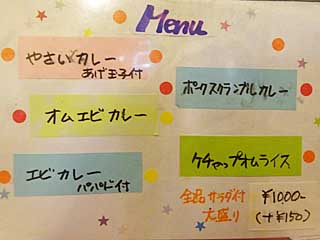 Menu
やさいカレー
あげ玉子付
オムエビカレー
エビカレー
パパド付
ポークスクランブルカレー
ケチャップオムライス
全品サラダ付
大盛り
¥1000-
(+¥150)